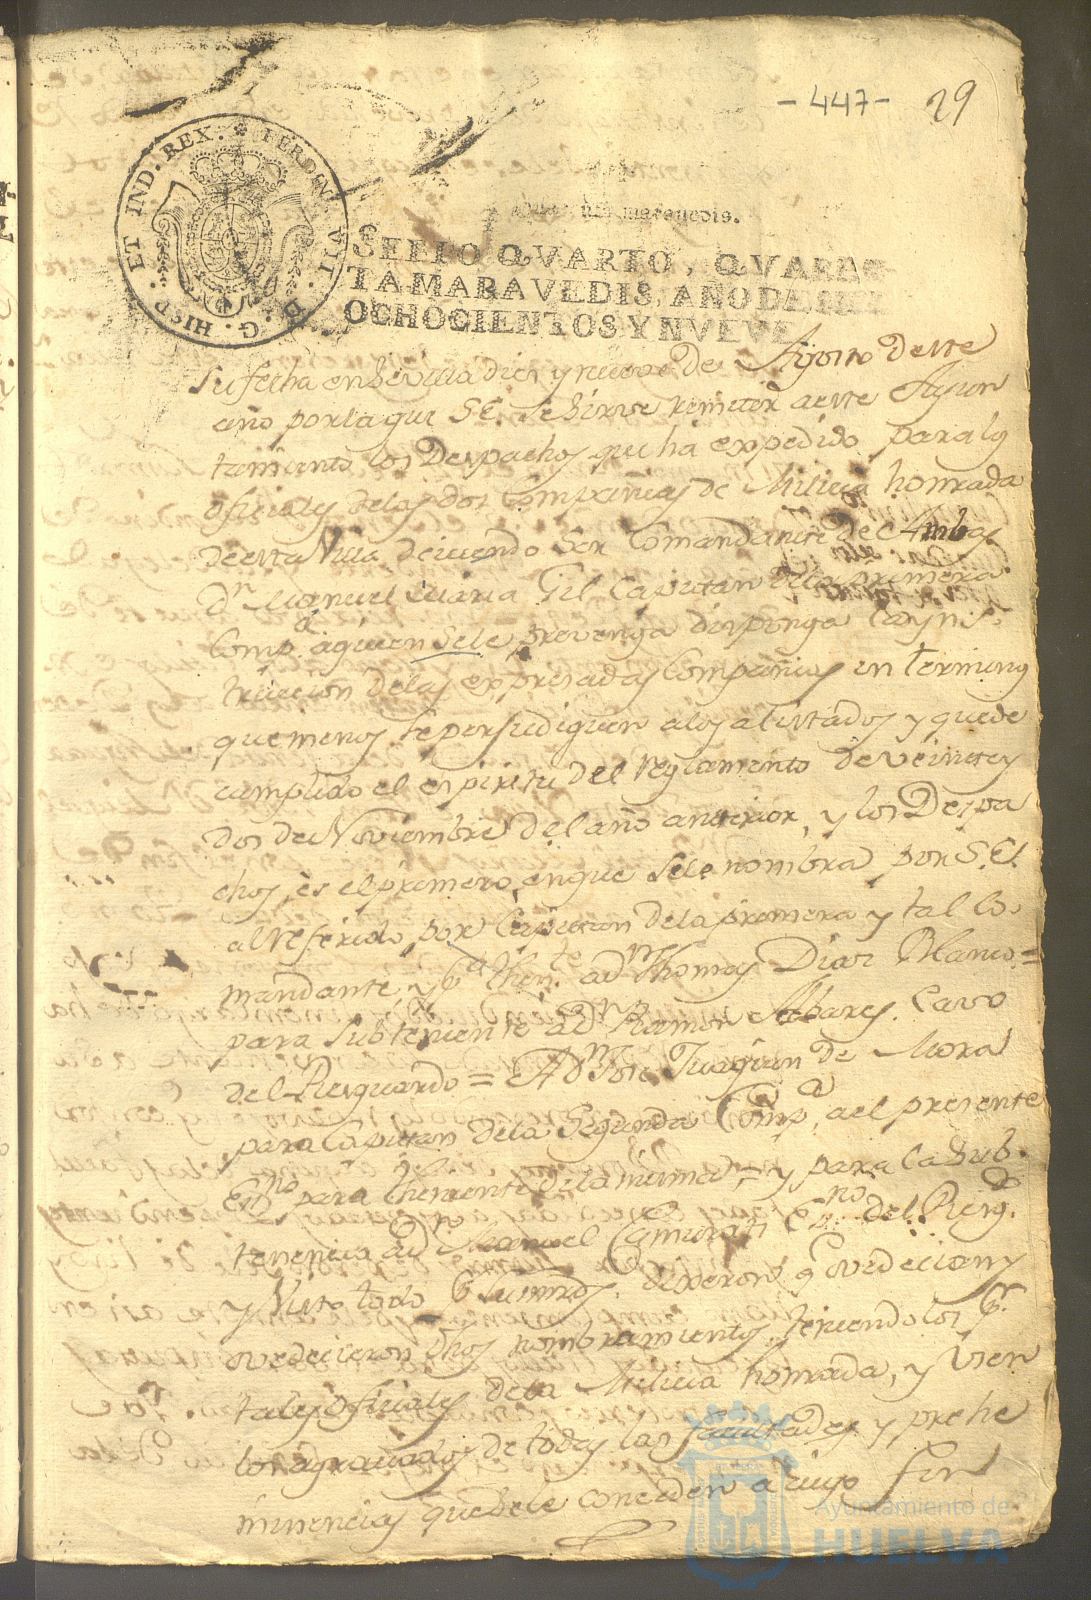 -447- 29
FERDIN. VII. D. G. HISP. ET IND. REX.
maravedis.
SELLO QVARTO, QVAREN
TA MARAVEDIS, AÑO DE MIL
OCHOCIENTOS Y NVEVE
su fecha en Sevilla diez y nueve de Agosto deste
año por la que S.E. se sirve remitir a este Ayun
tamiento los Despachos que ha expedido para los
oficiales de las dos Compañias de Milicia honrada
de esta Villa deviendo ser Comandante de Ambas
Dn. Manuel Maria Gil Capitan de la primera
Comp.a a quien se le prevenga disponga la Yns.
truccion de las expresadas Compañias en terminos
que menos se perjudiquen a los alistados y quede
cumplido el espiritu del reglamento de veinte y
dos de Noviembre del año anterior, y los Despa
chos, es el primero, en que se le nombra por S.E.
al referido por Capitan de la primera y tal Co.
mandante, y p.a Then.te a Dn. Thomas Diaz Blanco=
para subteniente a Dn. Ramon Albares. Cavo
del Resguardo = A Dn. Jose Juaquin de Mora
para Capitan de la Segunda Comp.a, a el presente
Esno. para Theniente de la misma = y para la Sub.
tenencia a Dn. Manuel Camurati Esno. del Resg.do
y Visto todo p.r sus mrds. dixeron q.e ovedecian y
ovedecieron dhos nombramientos, teniendolos p.r
tales Oficiales de la Milicia honrada, y vien
los agraciados de todas las facultades y prehe
minencias que se le conceden a cuyo fin
Ayuntamiento de
HUELVA